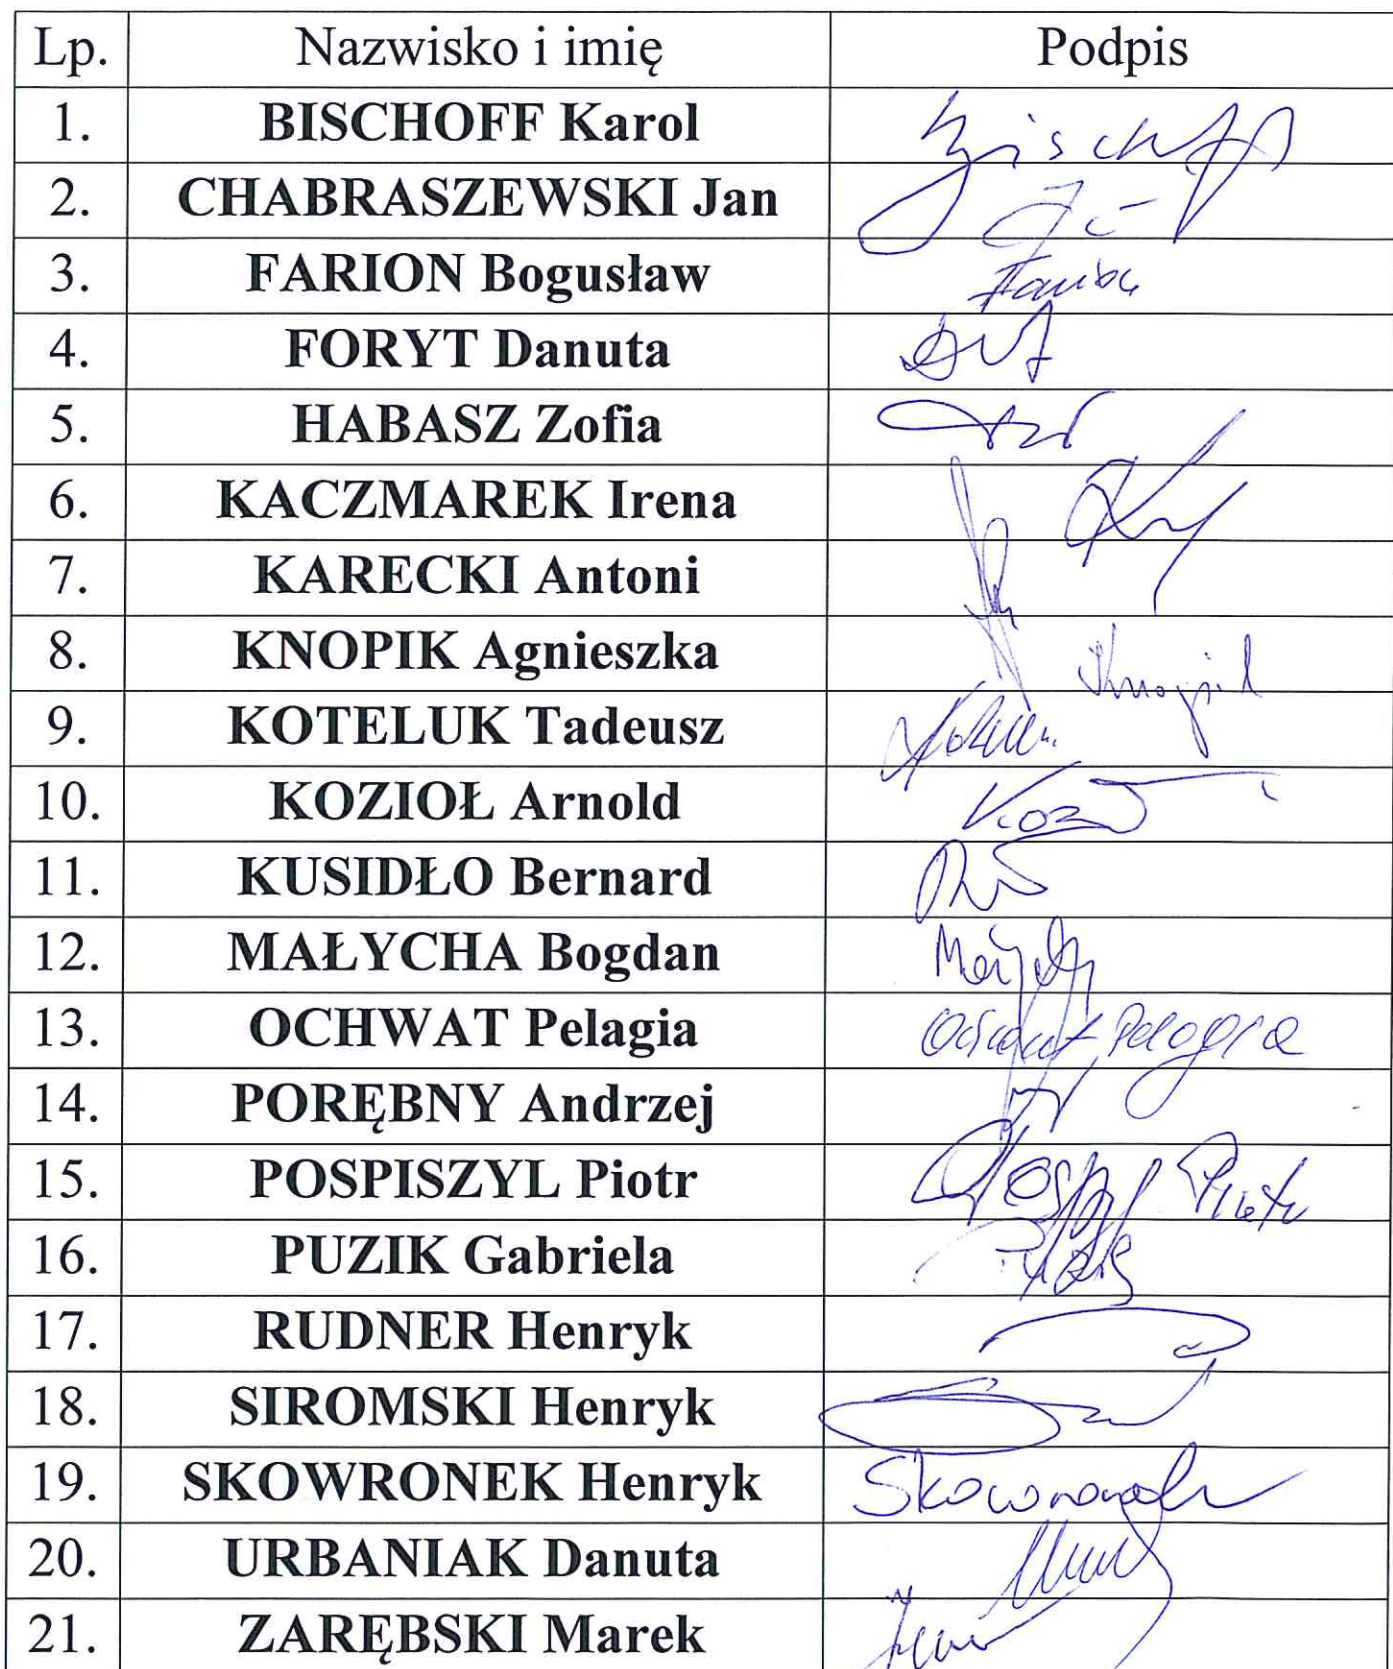 Lp. Nazwisko i imię Podpis
1. BISCHOFF Karol Bischoff
2. CHABRASZEWSKI Jan
3. FARION Bogusław Farion
4. FORYT Danuta
5. HABASZ Zofia
6. KACZMAREK Irena
7. KARECKI Antoni
8. KNOPIK Agnieszka Knopik
9. KOTELUK Tadeusz
10. KOZIOŁ Arnold
11. KUSIDŁO Bernard
12. MAŁYCHA Bogdan
13. OCHWAT Pelagia Ochwat Pelagia
14. PORĘBNY Andrzej
15. POSPISZYL Piotr Piotr
16. PUZIK Gabriela
17. RUDNER Henryk
18. SIROMSKI Henryk
19. SKOWRONEK Henryk Skowronek
20. URBANIAK Danuta
21. ZARĘBSKI Marek